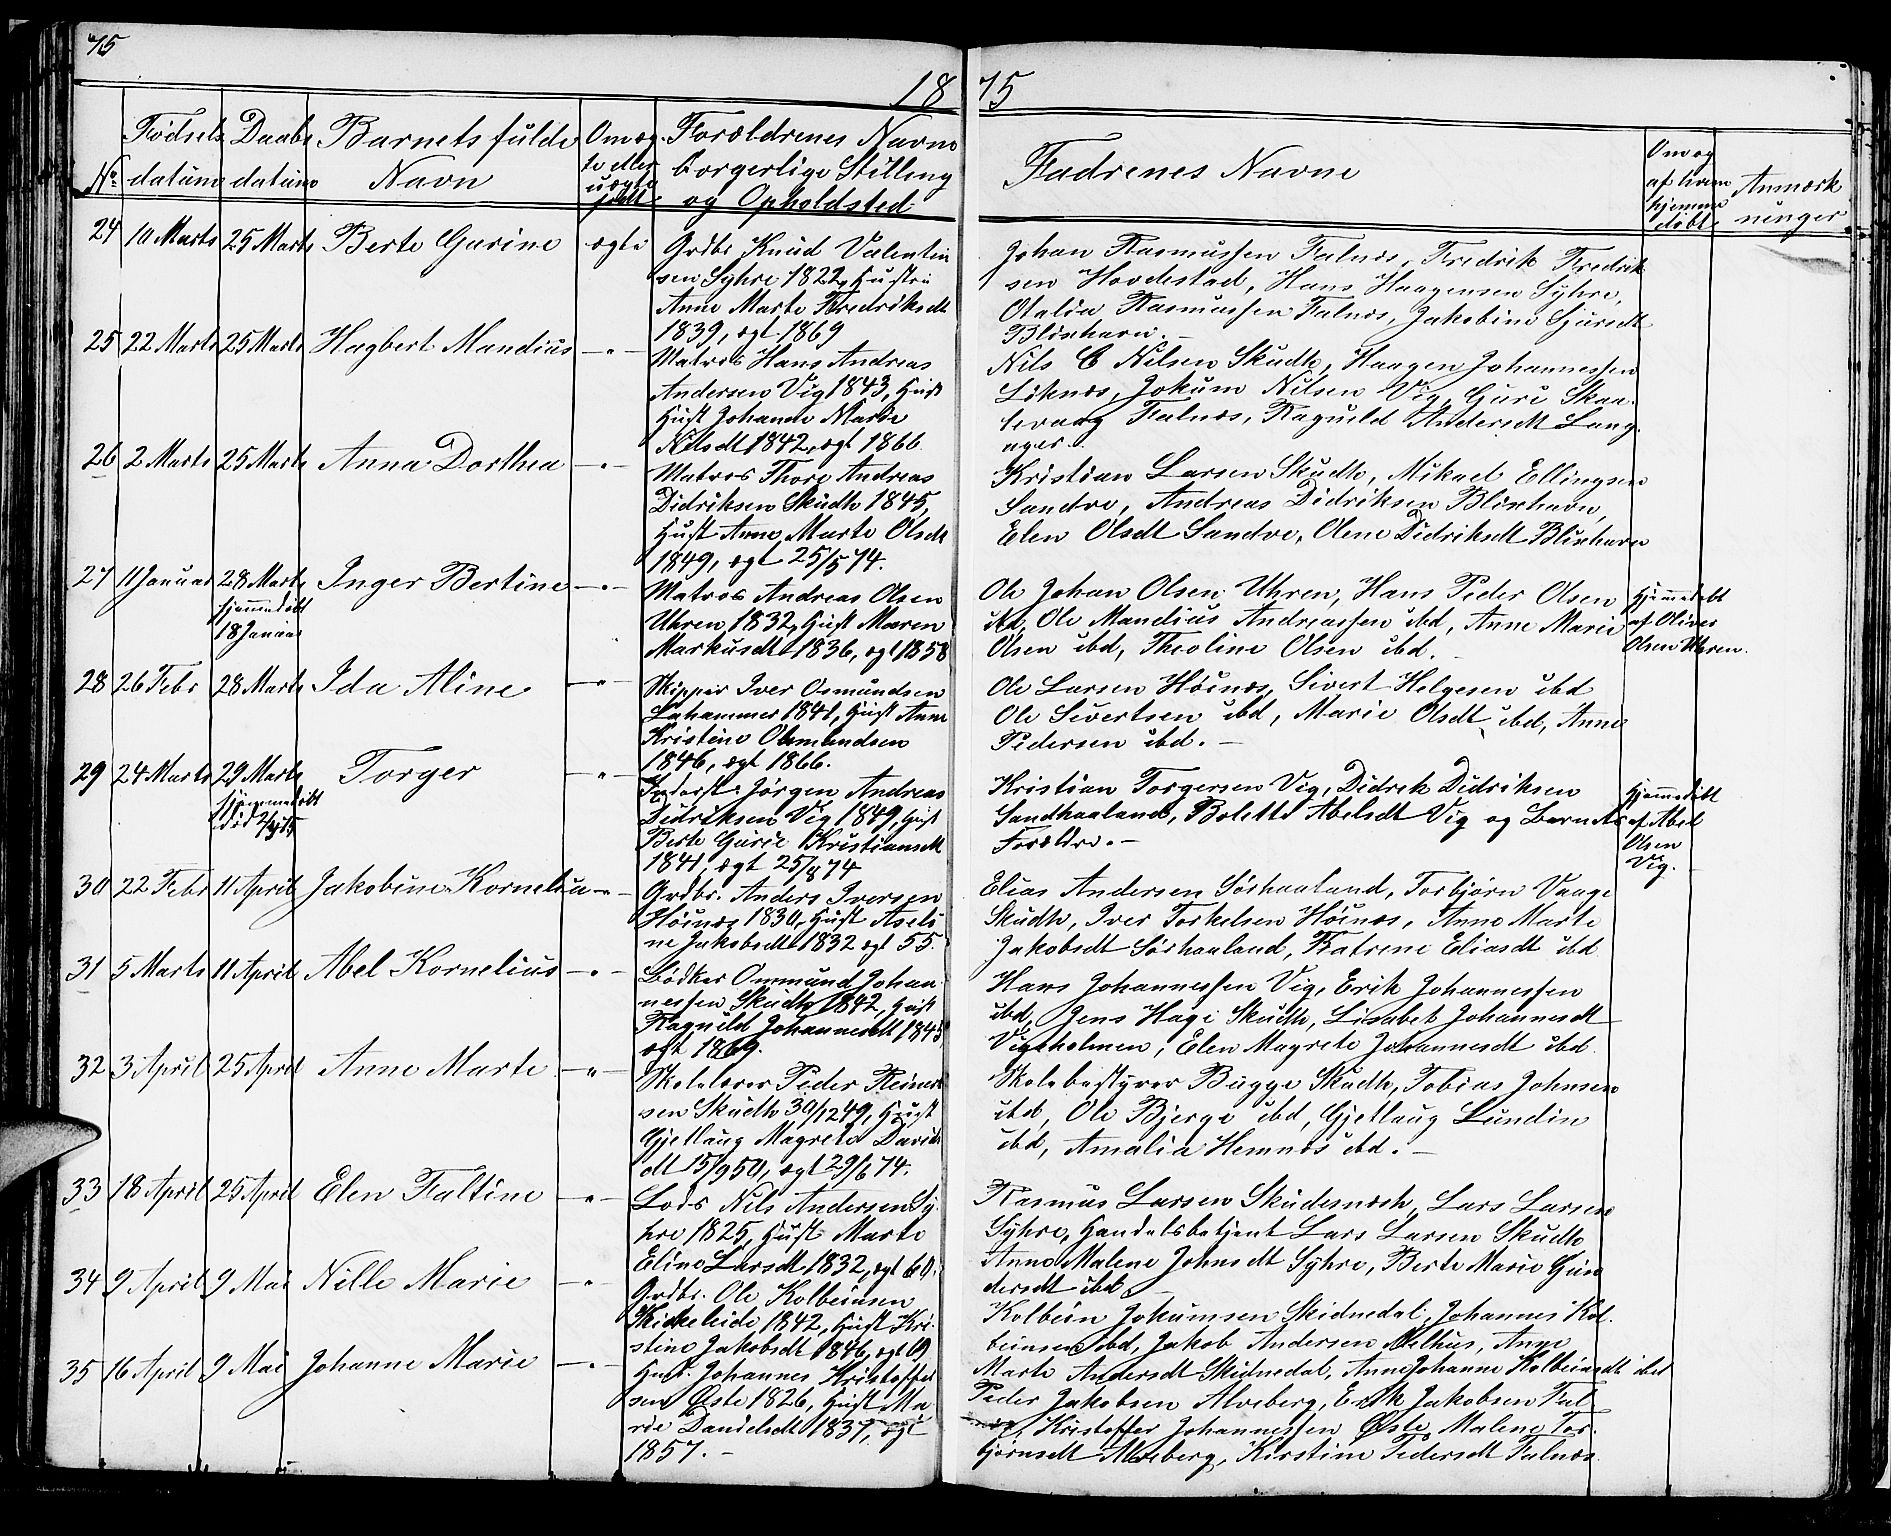 75
1875
No. Fødsels datum Daabs datum Barnets fulde Navn Om ægte eller uægte født Forældrenes Navne borgerlige Stilling og Opholdsted Fadrenes Navne Om og af hvem hjemmedøbt Anmærkninger
24 10 Marts 25 Marts Berte Gurine ægte
Grdbr Knud Valentin
sen Syhre 1822, Hustru
Anne Marte Fredriksdt
1839, ægt. 1869
Johan Rasmussen Falnæs, Fredrik Fredrik
sen Hovdestad, Hans Haagensen Syhre,
Otalia Rasmussen Falnæs, Jakobine Sjursdt
Blixhavn. –
25 22 Marts 25 Marts Hagbert Mandius – " –
Matros Hans Andreas
Andersen Vig 1843, Hust
Hust Johanne Marie
Nilsdt 1842, ægt 1866
Nils C Nilsen Skudh, Haagen Johannessen
Liknæs, Jokum Nilsen Vig, Guri Skaa-
levaag Falnæs, Ragnild Andersdt Lang-
ager.
26 2 Marts 25 Marts Anna Dorthea – " –
Matros Thore Andreas
Didriksen Skudh 1845,
Hust Anne Marte Olsdt
1849, ægt 25/5 74.
Kristian Larsen Skudh, Mikael Ellingsen
Sandve, Andreas Didriksen Blixhavn,
Elen Olsdt Sandve, Olene Didriksdt Blixhavn
27 11 Januar 28 Marts Inger Bertine – " –
hjemmedøbt
18 Januar
Matros Andreas Olsen
Uhren 1832, Hust Maren
Markusdt 1836, ægt 1858
Ole Johan Olsen Uhren, Hans Peder Olsen
ibd, Ole Mandius Andreassen ibd, Anne Marie
Olsen ibd, Theoline Olsen ibd. –
Hjemmedøbt
af Oliver
Olsen Uhren.
28 26 Febr 28 Marts Ida Aline – " –
Skipper Iver Osmundsen
Lahammer 1841, Hust Anne
Kristine Osmundsen
1846, ægt 1866.
Ole Larsen Høinæs, Sivert Helgesen ibd
Ole Sivertsen ibd, Marie Olsdt ibd, Anne
Pedersen ibd. –
29 24 Marts 29 Marts Torger – " –
hjemmedøbt
Inderst Jørgen Andreas
Didriksen Vig 1849, Hust
Berte Gurie Kristiansdt
1841, ægt 25/8 74
Kristian Torgersen Vig, Didrik Didriksen
Sandhaaland, Bolette Abelsdt Vig og Barnets
Forældre. –
Hjemmedøbt
af Abel
Olsen
Vig.
30 22 Febr 11 April Jakobine Kornelia – " –
Grdbr. Anders Iversen
Høinæs 1830, Hust Asels
ne Jakobsdt 1832 ægt 55.
Elias Andersen Sørhaaland, Torbjørn Vaage
Skudh, Iver Torkelsen Høinæs, Anne Marte
Jakobsdt Sørhaaland, Katrine Eliasdt ibd
31 5 Marts 11 April Abel Kornelius – " –
Bødker Ommund Johan
nessen Skudh 1842, Hust
Ragnild Johannesdt 1845
ægt 1869.
Hans Johannessen Vig, Erik Johannessen
ibd, Jens Hagi Skudh, Lisabet Johannesdt
Vigsholmen, Elen Magrete Johannesdt ibd
32 3 April 25 April Anne Marte – " –
Skolelærer Peder Reinert
sen Skudh 30/12 49, Hust
Gjetlaug Magrete David
dt 15/9 50, ægt 29/6 74.
Skolebestyrer Bugge Skudh, Tobias Johnsen
ibd, Ole Bjerge ibd, Gjetlaug Lundin
ibd, Amalia Hemnes ibd. –
33 18 April 25 April Elen Faltine – " –
Lods Nils Andersen Sy
hre 1825, Hust Marte
Eline Larsdt 1832, ægt 60.
Rasmus Larsen Skudesnæsh, Lars Larsen
Syhre, Handelsbetjent Lars Larsen Skudh
Anne Malene Johnsdt Syhre, Berte Marie Gun
dersdt ibd
34 9 April 9 Mai Nille Marie – " –
Grdbr. Ole Kolbeinsen
Kirkeleide 1842, Hust Kri
stine Jakobsdt 1846, ægt 69
Kolbein Jokumsen Skidnedal, Johannes Kol-
beinsen ibd, Jakob Andersen Melhus, Anne
Marte Andersdt Skidnedal, Anne Johanne Kolbeinsdt ibd
35 16 April 9 Mai Johanne Marie – " –
Johannes Kristoffer
sen Øste 1826, Hust Ma
rie Danielsdt 1837, ægt
1857. –
Peder Jakobsen Alveberg, Erik Jakobsen Fal
næs, Kristoffer Johannessen Øste, Malene Tor-
bjørnsdt Alveberg, Kirstine Pedersdt Falnæs.